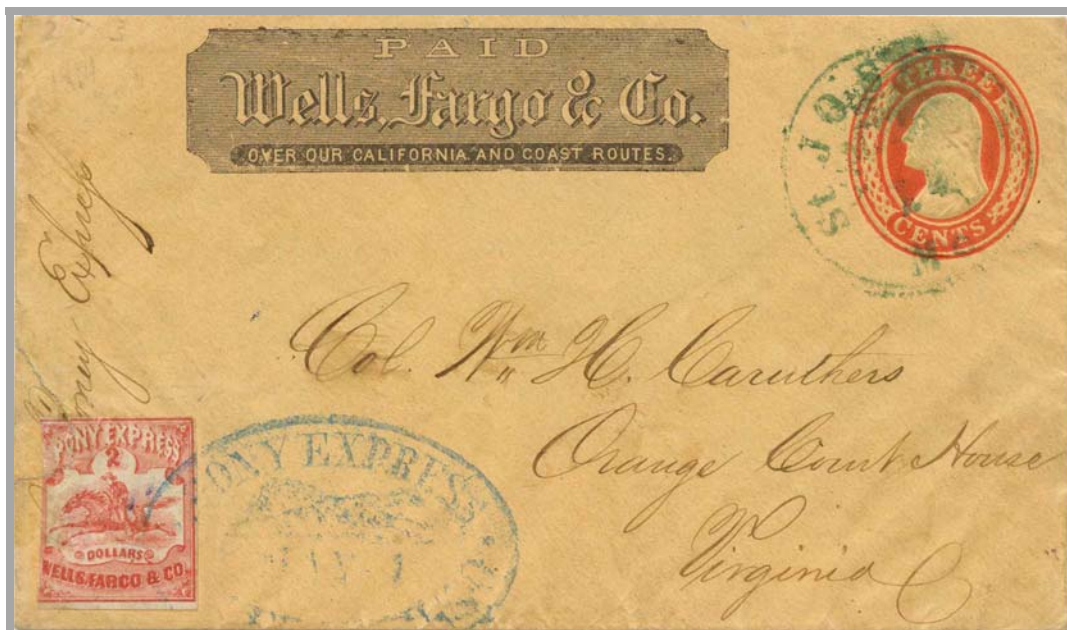 PAID
Wells, Fargo & Co.
OVER OUR CALIFORNIA AND COAST ROUTES.
THREE
CENTS
St JOSEPH
Pony Express
Col. Wm H. Caruthers
Orange Court House
Virginia
PONY EXPRESS
2
DOLLARS
WELLS, FARGO & CO.
PONY EXPRESS
MAY 1